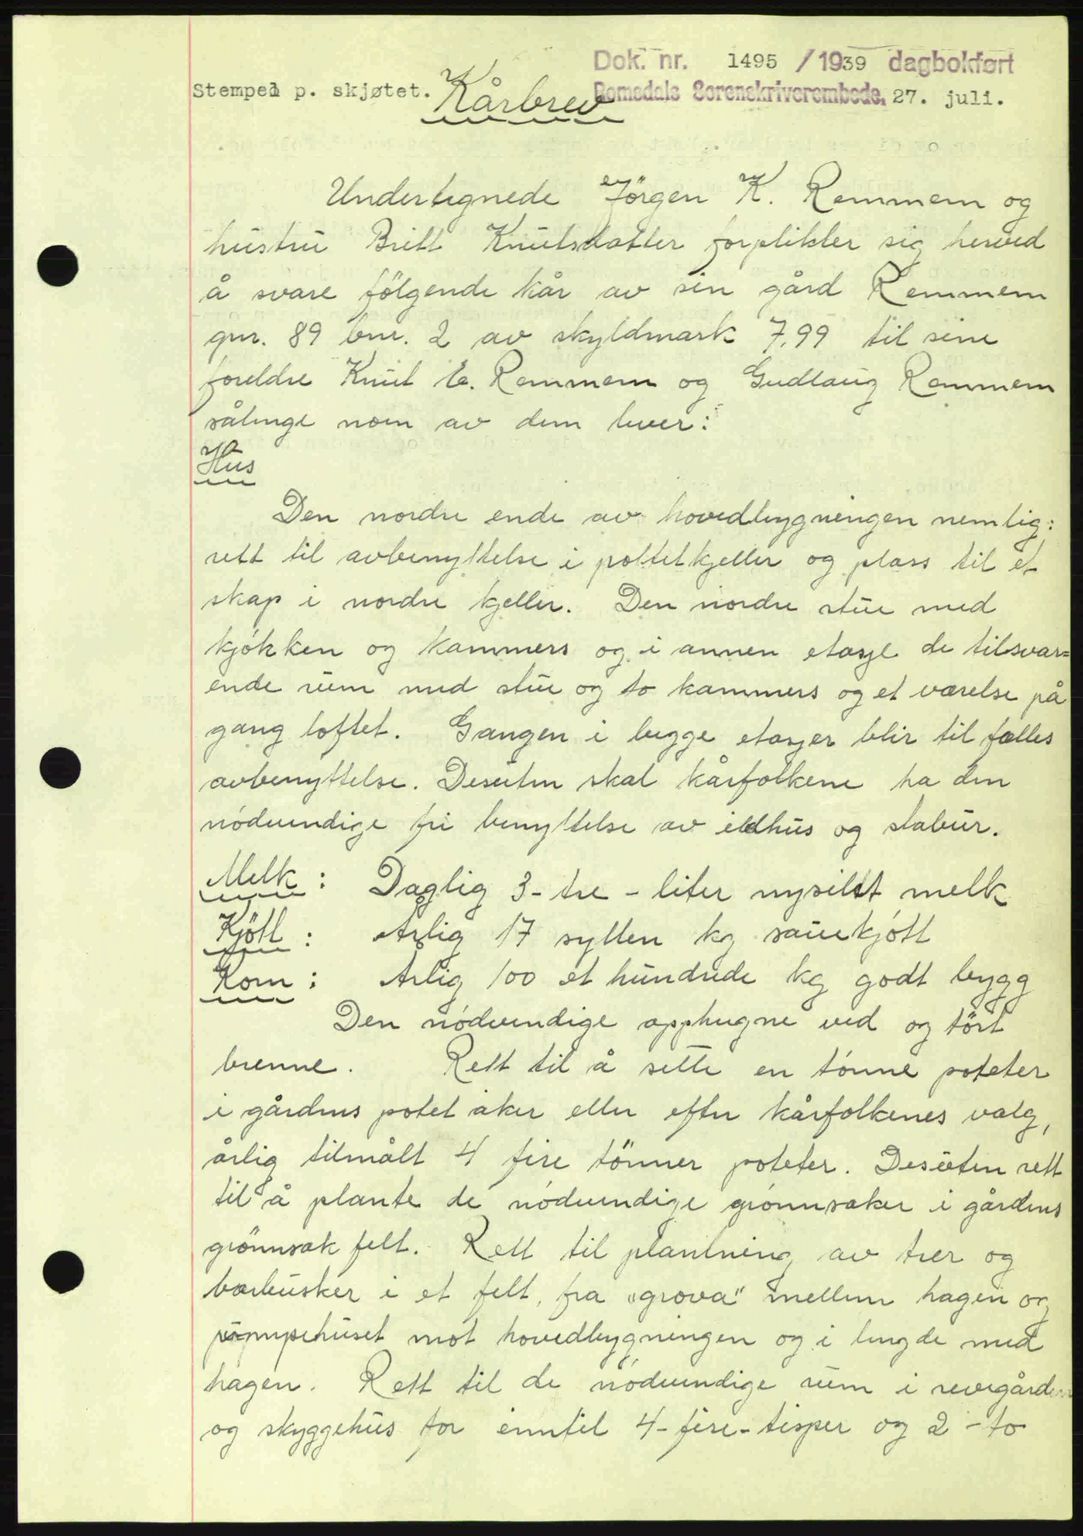 Dok. nr. 1495 / 1939 dagbokført
Stempel p. skjøtet. Romsdals Sorenskriverembede. 27. juli.
Kårbrev
Undertegnede Jörgen K. Remmem og
hustru Britt Knutsdatter forplikter sig herved
å svare fölgende kår av sin gård Remmem
gnr. 89 bnr. 2 av skyldmark 7,99 til sine
foreldre Knut E. Remmem og Gudlaug Remmem
sålenge noen av dem lever:
Hus
Den nordre ende av hovedbygningen nemlig:
rett til avbenyttelse i potetkjeller og plass til et
skap i nordre kjeller. Den nordre stue med
kjökken og kammers og i annen etasje de tilsvar=
ende rum med stue og to kammers og et værelse på
gang loftet. Gangen i begge etasjer blir til fælles
avbenyttelse. Desuten skal kårfolkene ha den
nödvendige fri benyttelse av eldhus og stabur.
Melk : Daglig 3 - tre - liter nysilt melk
Kjött : Årlig 17 sytten kg sauekjött
Korn : Årlig 100 et hundrede kg godt bygg
Den nödvendige opphugne ved og tört
brenne. Rett til å sette en tönne poteter
i gårdens potet åker eller efter kårfolkenes valg,
årlig tilmålt 4 fire tönner poteter. Desuten rett
til å plante de nödvendige grönnsaker i gårdens
grönnsak felt. Rett til plantning av trer og
bærbusker i et felt, fra "grova" mellem hagen og
pumpehuset mot hovedbygningen og i lengde med
hagen. Rett til de nödvendige rum i revegården
og skyggehus for inntil 4 - fire - tisper og 2 - to